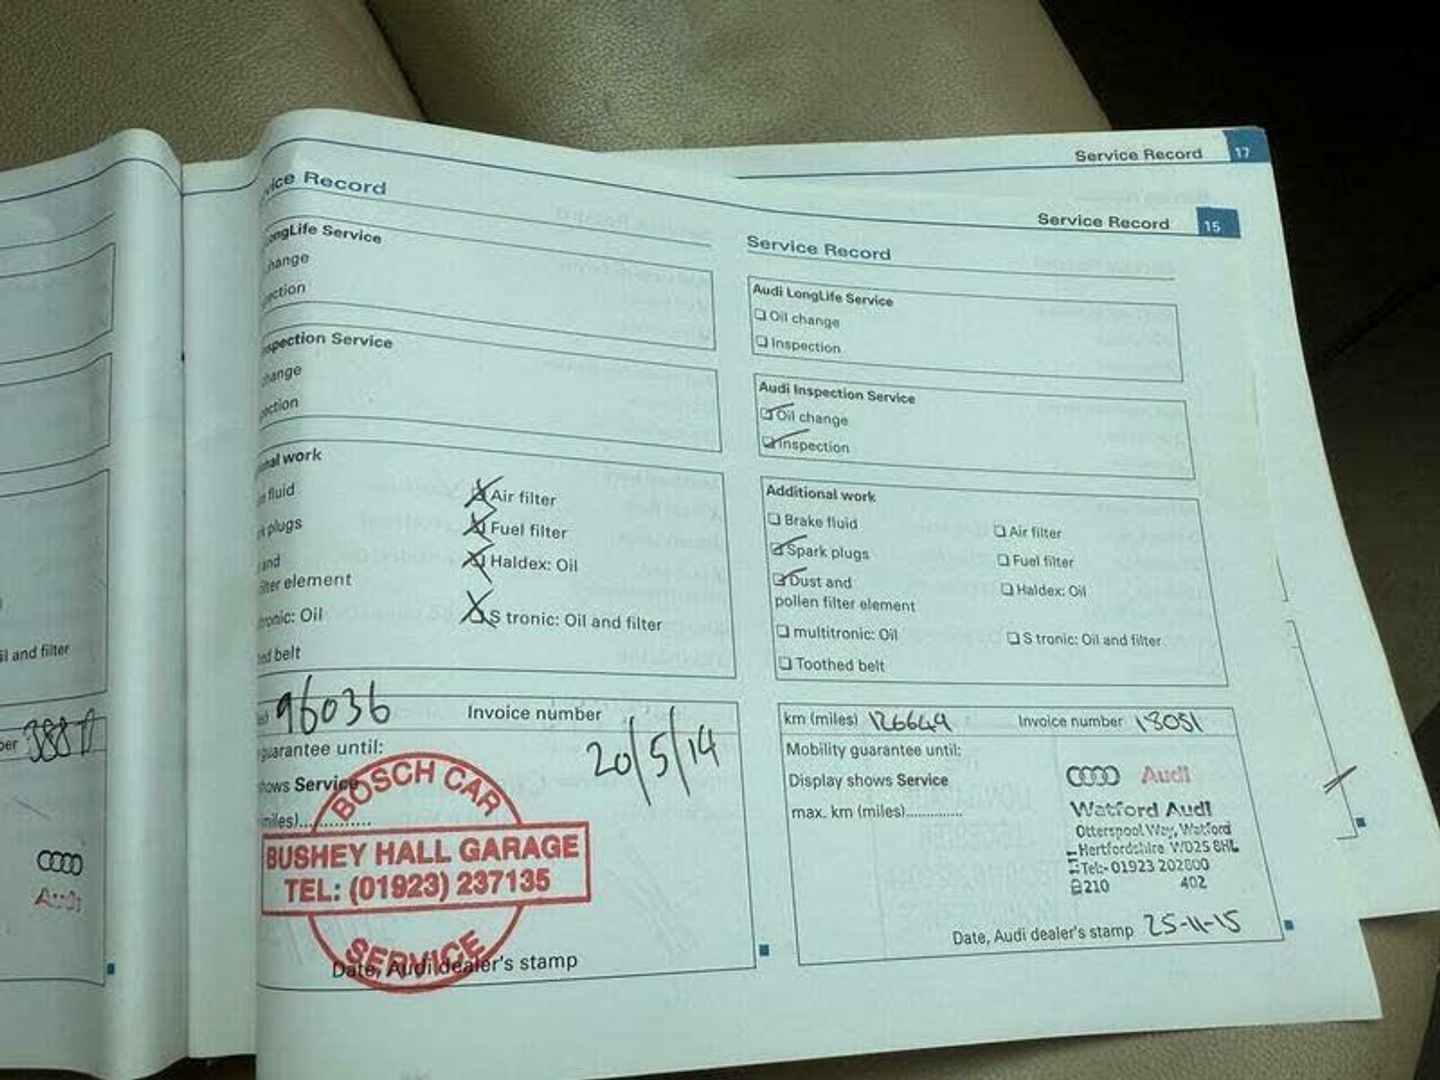 Service Record 17
Service Record 15
vice Record
ongLife Service
hange
ection
spection Service
change
pection
nal work
fluid
Air filter
plugs
Fuel filter
and
Haldex: Oil
element
tronic: Oil
S tronic: Oil and filter
ed belt
96036
Invoice number
guarantee until:
20/5/14
hows Service
miles)..............
BOSCH CAR
BUSHEY HALL GARAGE
TEL: (01923) 237135
SERVICE
Date, Audi dealer's stamp
Service Record
Audi LongLife Service
Oil change
Inspection
Audi Inspection Service
Oil change
Inspection
Additional work
Brake fluid
Air filter
Spark plugs
Fuel filter
Dust and
pollen filter element
Haldex: Oil
multitronic: Oil
S tronic: Oil and filter
Toothed belt
km (miles) 126649 Invoice number 18051
Mobility guarantee until:
Display shows Service
max. km (miles)..............
Audi
Watford Audi
Otterspool Way, Watford
Hertfordshire WD25 8HL
Tel:- 01923 202800
210 402
Date, Audi dealer's stamp 25-11-15
il and filter
Audi